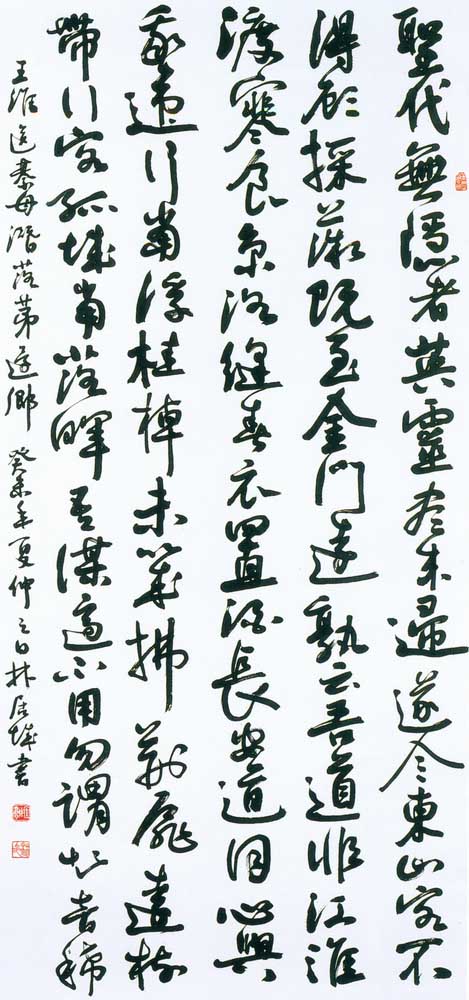 聖代無隱者英靈盡来歸遂令東山客不
得顧採薇既至金門遠孰云吾道非江淮
渡寒食京洛縫春衣置酒長安道同心與
我違行當浮桂棹未幾拂荊扉遠樹
帶行客孤城當落暉吾謀適不用勿謂知音稀
王維送綦毋潛落第還鄉 癸未年夏仲之日林居城書